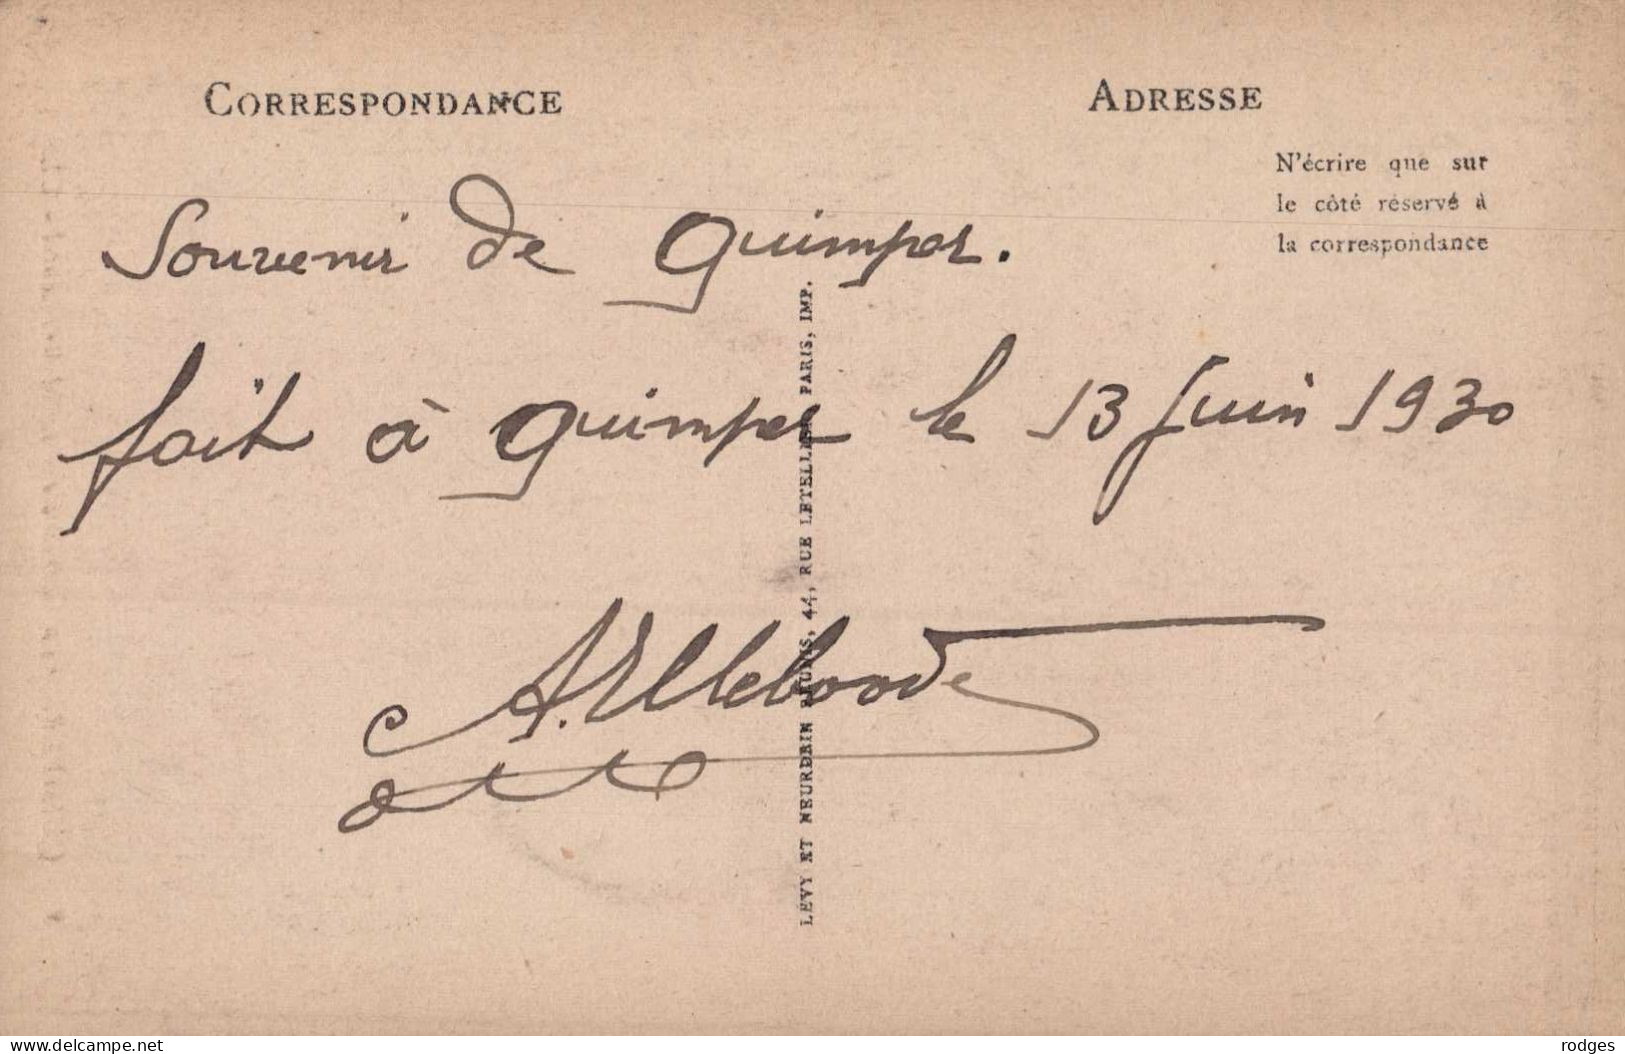 CORRESPONDANCE
ADRESSE
N'écrire que sur
le côté réservé à
la correspondance
Souvenir de Quimper.
fait à Quimper le 13 Juin 1930
A.
LÉVY ET NEURDEIN RÉUNIS, 44, RUE LETELLIER, PARIS, IMP.
www.delcampe.net
rodges